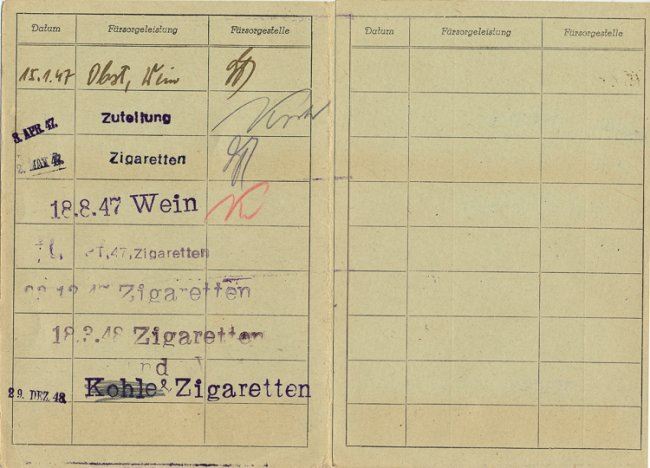 Datum Fürsorgeleistung Fürsorgestelle
15.1.47 Obst, Wein
3. APR. 47. Zuteilung
2. MAI 47. Zigaretten
18.8.47 Wein
47, Zigaretten
Zigaretten
18.3.48 Zigaretten
nd
29. DEZ. 48. Kohle & Zigaretten
Datum Fürsorgeleistung Fürsorgestelle